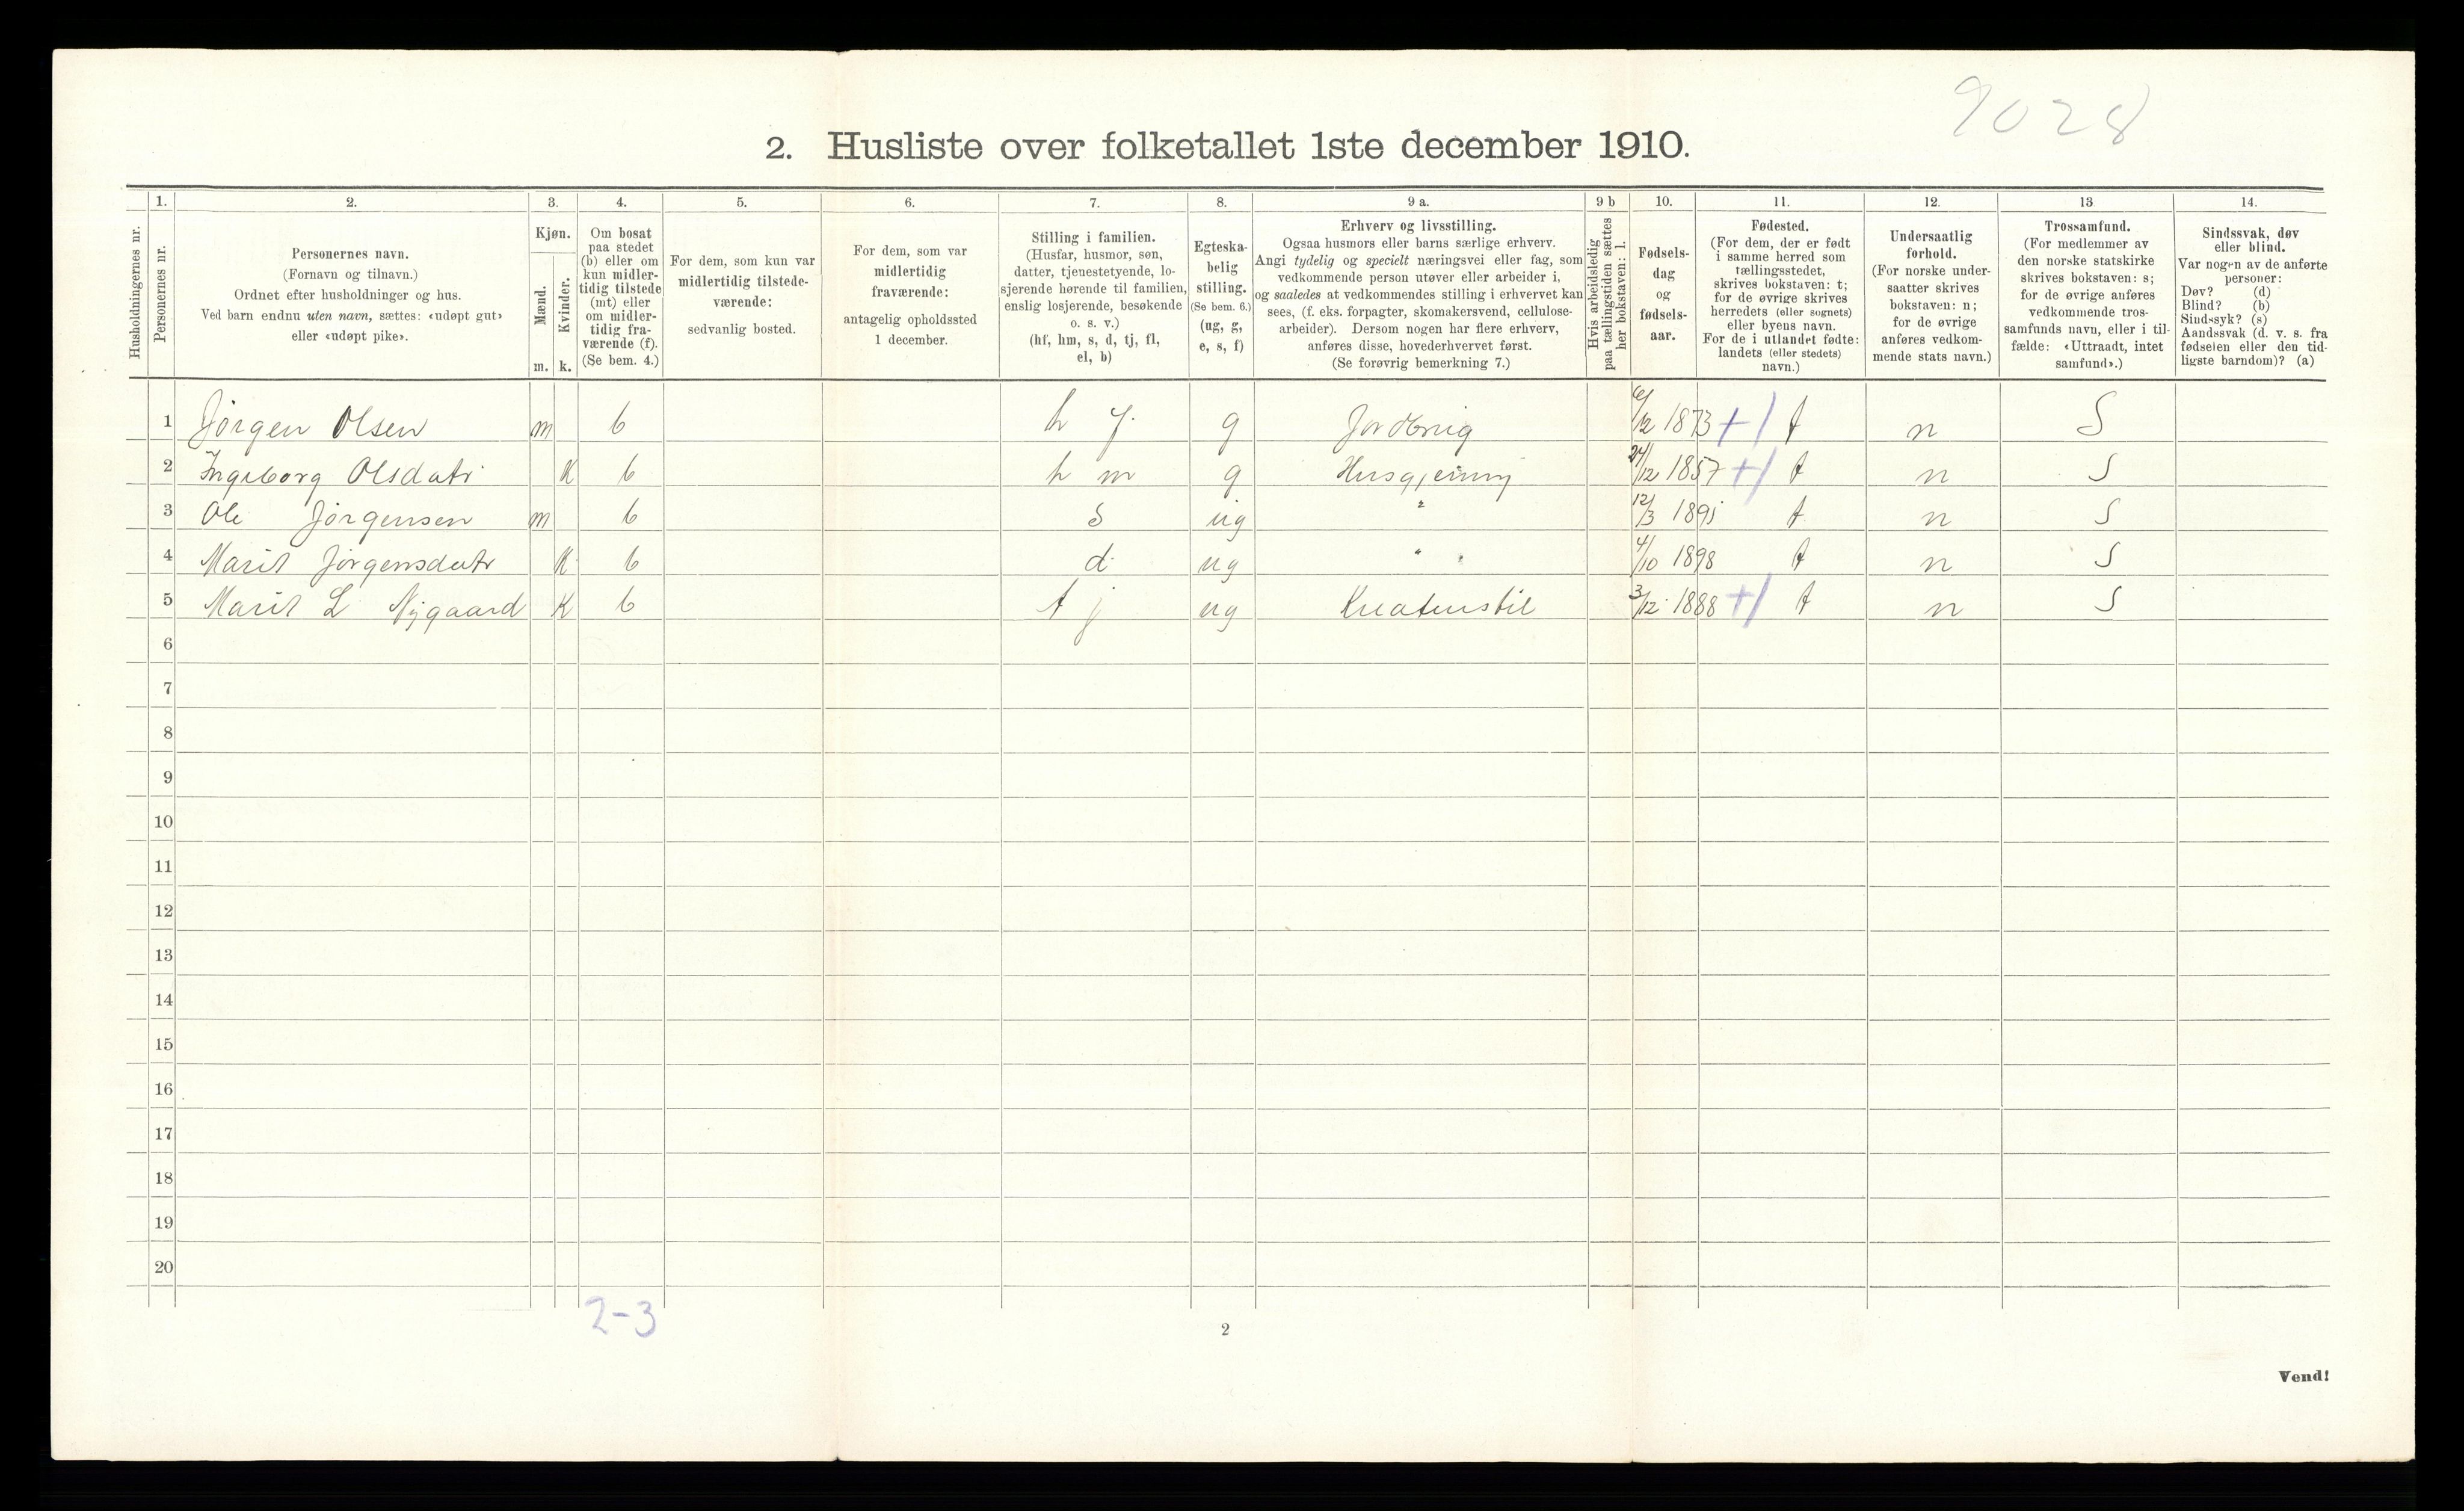 9028
2. Husliste over folketallet 1ste december 1910.
1. 2. 3. 4. 5. 6. 7. 8. 9 a. 9 b 10. 11. 12. 13 14.
Husholdningernes nr.
Personernes nr.
Personernes navn.
(Fornavn og tilnavn.)
Ordnet efter husholdninger og hus.
Ved barn endnu uten navn, sættes: «udøpt gut»
eller «udøpt pike».
Kjøn.
Mænd.
Kvinder.
m. k.
Om bosat
paa stedet
(b) eller om
kun midler-
tidig tilstede
(mt) eller
om midler-
tidig fra-
værende (f).
(Se bem. 4.)
For dem, som kun var
midlertidig tilstede-
værende:
sedvanlig bosted.
For dem, som var
midlertidig
fraværende:
antagelig opholdssted
1 december.
Stilling i familien.
(Husfar, husmor, søn,
datter, tjenestetyende, lo-
sjerende hørende til familien,
enslig losjerende, besøkende
o. s. v.)
(hf, hm, s, d, tj, fl,
el, b)
Egteska-
belig
stilling.
(Se bem. 6.)
(ug, g,
e, s, f)
Erhverv og livsstilling.
Ogsaa husmors eller barns særlige erhverv.
Angi tydelig og specielt næringsvei eller fag, som
vedkommende person utøver eller arbeider i,
og saaledes at vedkommendes stilling i erhvervet kan
sees, (f. eks. forpagter, skomakersvend, cellulose-
arbeider). Dersom nogen har flere erhverv,
anføres disse, hovederhvervet først.
(Se forøvrig bemerkning 7.)
Hvis arbeidsledig
paa tællingstiden sættes
her bokstaven: l.
Fødsels-
dag
og
fødsels-
aar.
Fødested.
(For dem, der er født
i samme herred som
tællingsstedet,
skrives bokstaven: t;
for de øvrige skrives
herredets (eller sognets)
eller byens navn.
For de i utlandet fødte:
landets (eller stedets)
navn.)
Undersaatlig
forhold.
(For norske under-
saatter skrives
bokstaven: n;
for de øvrige
anføres vedkom-
mende stats navn.)
Trossamfund.
(For medlemmer av
den norske statskirke
skrives bokstaven: s;
for de øvrige anføres
vedkommende tros-
samfunds navn, eller i til-
fælde: «Uttraadt, intet
samfund».)
Sindssvak, døv
eller blind.
Var nogen av de anførte
personer:
Døv? (d)
Blind? (b)
Sindssyk? (s)
Aandssvak (d. v. s. fra
fødselen eller den tid-
ligste barndom)? (a)
1 Jørgen Olsen m b h f. g 6/12 1873 +1 t n S
2 Ingeborg Olsdatr K b h m g Husgjerning 24/12 1857 +1 t n S
3 Ole Jørgensen m b s ug " 12/3 1891 t n S
4 Marit Jørgensdatr K b d ug " 4/10 1898 t n S
5 Marit L Nygaard K b t j ug Kreaturstel 3/12 1888 +1 t n S
6
7
8
9
10
11
12
13
14
15
16
17
18
19
20
2-3
2
Vend!